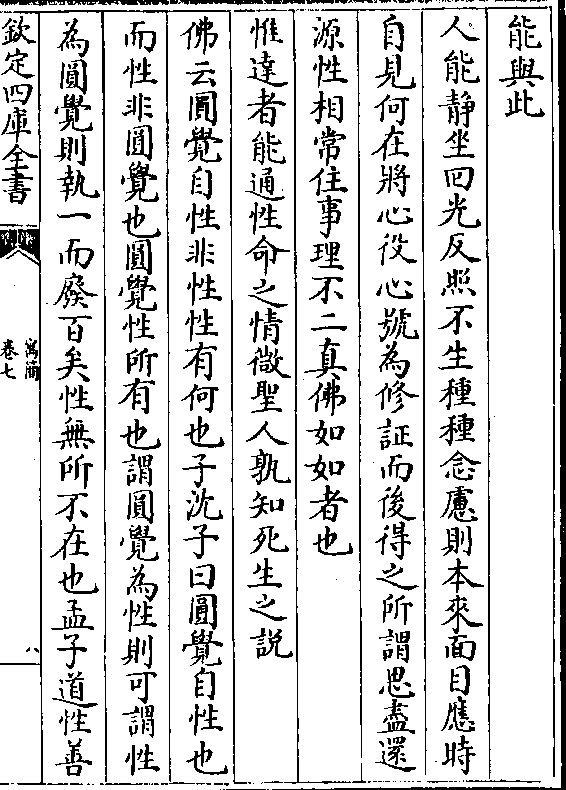 能與此
人能静坐回光反照不生種種念慮則本來面目應時
自見何在將心役心號為修証而後得之所謂思盡還
源性相常住事理不二真佛如如者也
惟達者能通性命之情微聖人孰知死生之説
佛云圓覺自性非性性有何也子沈子曰圓覺自性也
而性非圓覺也圓覺性所有也謂圓覺為性則可謂性
為圓覺則執一而廢百矣性無所不在也孟子道性善
欽定四庫全書
寓簡
卷七
八